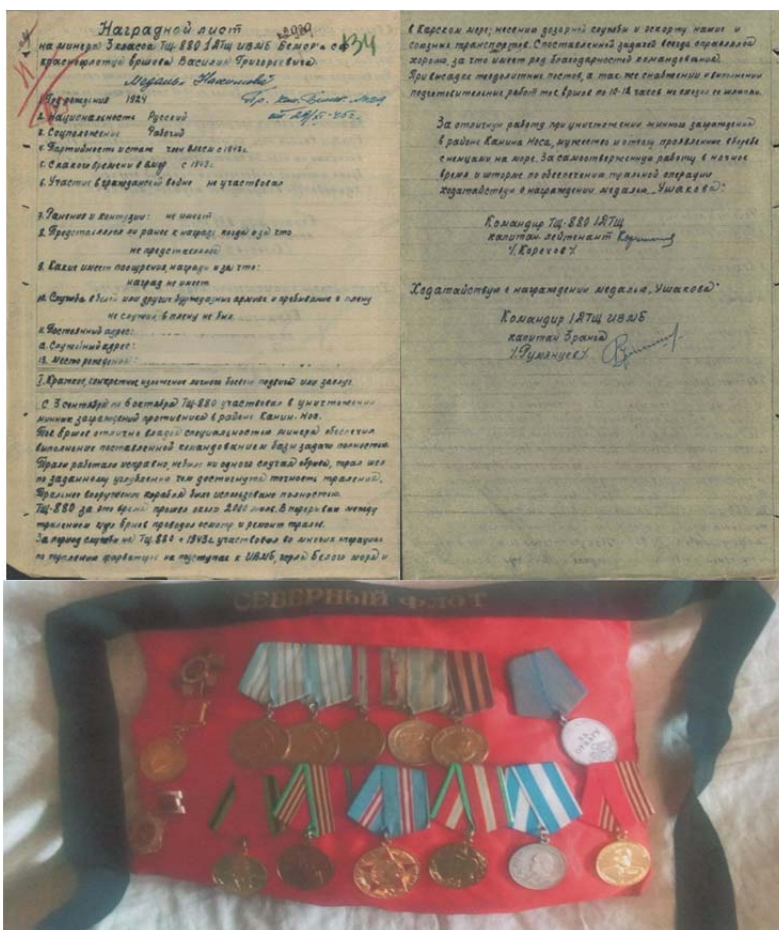 Наградной лист
134
на минера 3 класса ТЩ-880 1 ДТЩ ИВМБ Беломор
краснофлотца Ершова Василия Григорьевича
Медалью Нахимова
1. Год рождения 1924
2. Национальность Русский
3. Соцположение Рабочий
4. Партийность и стаж член ВЛКСМ с 194
5. С какого времени в ВМФ с 1942г.
6. Участие в гражданской войне не участвовал
7. Ранение и контузии: не имеет
8. Представлялся ли ранее к награде когда и за что
не представлялся
9. Какие имеет поощрения, награды и за что:
наград не имеет
10. Служба в белой или других буржуазных армиях и пребывание в плену
не служил, в плену не был
11. Постоянный адрес:
12. Служебный адрес:
13. Место рождения:
I. Краткое, конкретное изложение личного боевого подвига или заслуг.
С 3 сентября по 6 октября ТЩ-880 участвовал в уничтожении
минных заграждений противника в районе Канин-Нос.
Тов Ершов отлично владея специальностью минера обеспечил
выполнение поставленной командованием базы задачи полностью.
Тралы работали исправно, небыло ни одного случая обрыва, трал шел
по заданному углублению чем достигнута точность траления.
Тральное вооружение корабля было использовано полностью.
ТЩ-880 за это время прошел около 2000 миль. В перерывах между
тралением курс Ершов проводил осмотр и ремонт тралов.
За период службы на ТЩ-880 с 1943г. участвовал во многих операциях
по тралению фарватеров на подступах к ИВМБ, горла Белого моря и
в Карском море; несению дозорной службы и эскорту наших и
союзных транспортов. С поставленной задачей всегда справлялся
хорошо, за что имеет ряд благодарностей командования.
При высадке теодолитных постов, а так же снабжении и выполнении
подготовительных работ тов Ершов по 10-12 часов не сходил со шлюпки.
За отличную работу при уничтожении минного заграждения
в районе Канина Носа, мужество и отвагу проявленные в борьбе
с немцами на море. За самоотверженную работу в ночное
время и шторме по обеспечению тральной операции
ходатайствую о награждении медалью „Ушакова“
Командир ТЩ-880 1ДТЩ
капитан-лейтенант
/. Корехов /.
Ходатайствую о награждении медалью „Ушакова“
Командир 1 ДТЩ ИВМБ
капитан 3 ранга
/. Румянцев /.
СЕВЕРНЫЙ ФЛОТ
ЗА
ОТВАГУ